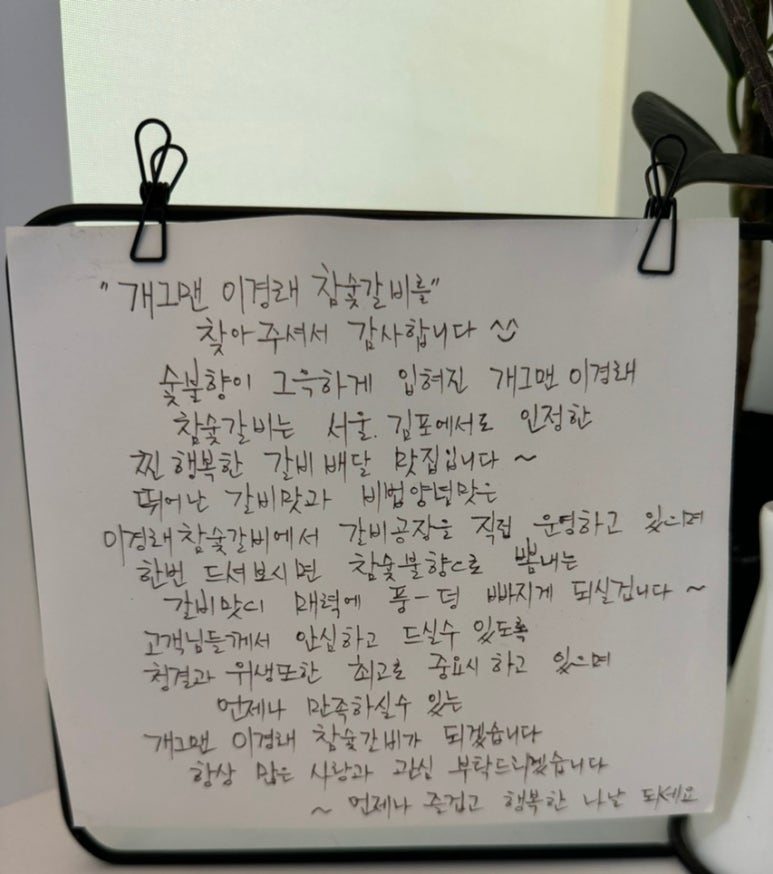 "개그맨 이경래 참숯갈비를"
찾아주셔서 감사합니다
숯불향이 그윽하게 입혀진 개그맨 이경래
참숯갈비는 서울. 김포에서도 인정한
찐 행복한 갈비 배달 맛집입니다 ~
뛰어난 갈비맛과 비법양념맛은
이경래참숯갈비에서 갈비공장을 직접 운영하고 있으며
한번 드셔보시면 참숯불향으로 뽐내는
갈비맛의 매력에 풍-덩 빠지게 되실겁니다 ~
고객님들께서 안심하고 드실수 있도록
청결과 위생또한 최고로 중요시 하고 있으며
언제나 만족하실수 있는
개그맨 이경래 참숯갈비가 되겠습니다
항상 많은 사랑과 관심 부탁드리겠습니다
~ 언제나 즐겁고 행복한 나날 되세요